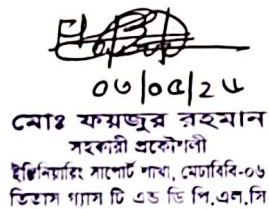 ০৬/০৫/২৫
মোঃ ফয়জুর রহমান
সহকারী প্রকৌশলী
ইঞ্জিনিয়ারিং সাপোর্ট শাখা, মেঢাবিবি-০৬
তিতাস গ্যাস টি এন্ড ডি পি,এল,সি